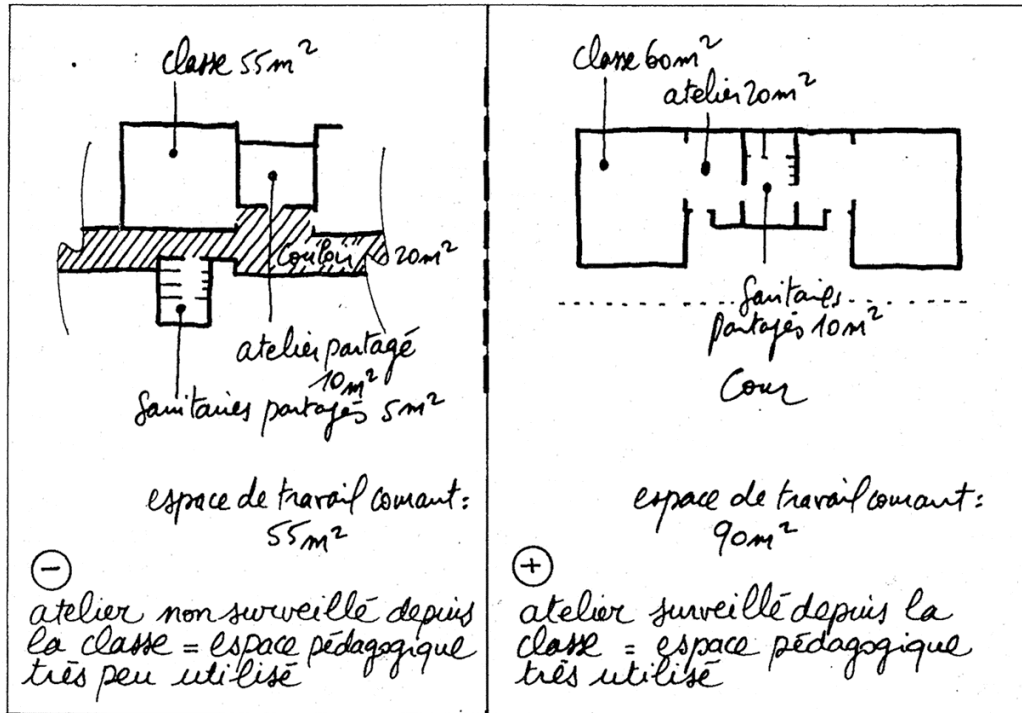 classe 55m²
couloir 20m²
atelier partagé
10m²
sanitaires partagés 5m²
espace de travail courant :
55m²
−
atelier non surveillé depuis
la classe = espace pédagogique
très peu utilisé
classe 60m²
atelier 20m²
sanitaires
partagés 10m²
Cour
espace de travail courant :
90m²
+
atelier surveillé depuis la
classe = espace pédagogique
très utilisé